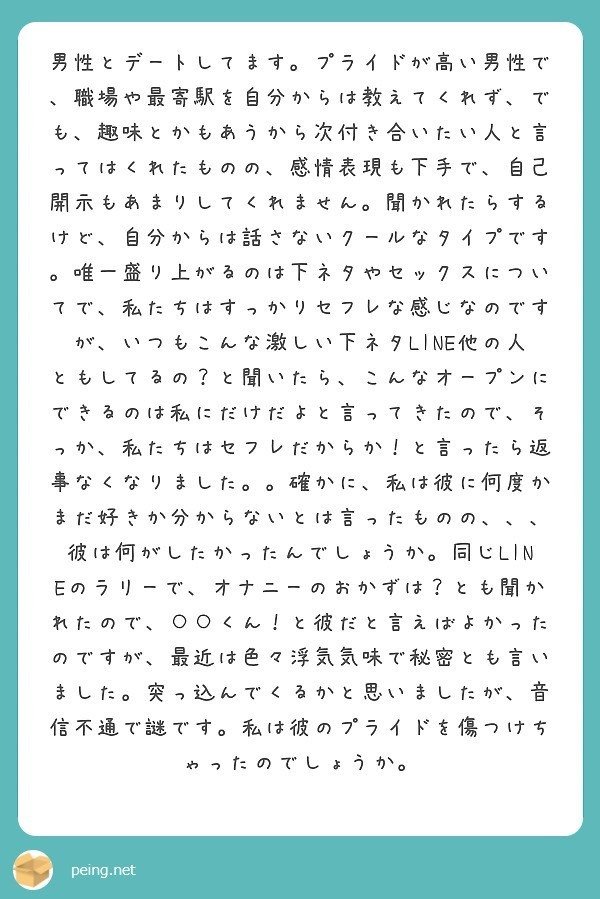 男性とデートしてます。プライドが高い男性で
、職場や最寄駅を自分からは教えてくれず、で
も、趣味とかもあうから次付き合いたい人と言
ってはくれたものの、感情表現も下手で、自己
開示もあまりしてくれません。聞かれたらする
けど、自分からは話さないクールなタイプです
。唯一盛り上がるのは下ネタやセックスについ
てで、私たちはすっかりセフレな感じなのです
が、いつもこんな激しい下ネタLINE他の人
ともしてるの？と聞いたら、こんなオープンに
できるのは私にだけだよと言ってきたので、そ
っか、私たちはセフレだからか！と言ったら返
事なくなりました。。確かに、私は彼に何度か
まだ好きか分からないとは言ったものの、、、
彼は何がしたかったんでしょうか。同じLIN
Eのラリーで、オナニーのおかずは？とも聞か
れたので、〇〇くん！と彼だと言えばよかった
のですが、最近は色々浮気気味で秘密とも言い
ました。突っ込んでくるかと思いましたが、音
信不通で謎です。私は彼のプライドを傷つけち
ゃったのでしょうか。
peing.net